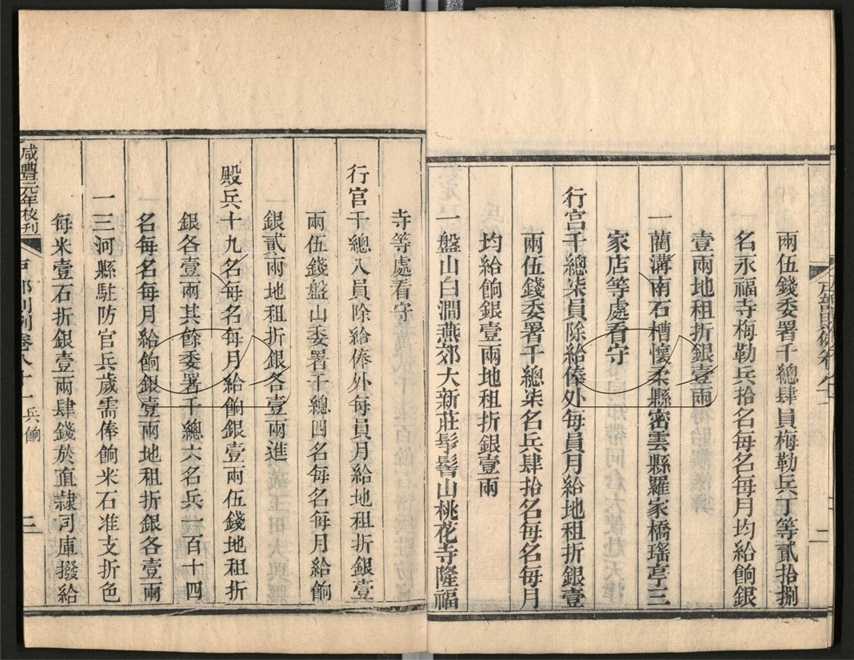 兩伍錢委署千總肆員梅勒兵丁等貳拾捌
名永福寺梅勒兵拾名每名每月均給餉銀
壹兩地租折銀壹兩
一藺溝南石槽懷柔縣密雲縣羅家橋瑤亭三
家店等處看守
行宮千總柒員除給俸外每員月給地租折銀壹
兩伍錢委署千總柒名兵肆拾名每名每月
均給餉銀壹兩地租折銀壹兩
一盤山白澗燕郊大新莊髽髻山桃花寺隆福
寺等處看守
行宮千總入員除給俸外每員月給地租折銀壹
兩伍錢盤山委署千總四名每名每月給餉
銀貳兩地租折銀各壹兩進
殿兵十九名每名每月給餉銀壹兩伍錢地租折
銀各壹兩其餘委署千總六名兵一百十四
名每名每月給餉銀壹兩地租折銀各壹兩
一三河縣駐防官兵歲需俸餉米石准支折色
每米壹石折銀壹兩肆錢於直隸司庫撥給
咸豐元年校刊 戶部則例卷八十一 兵餉 三